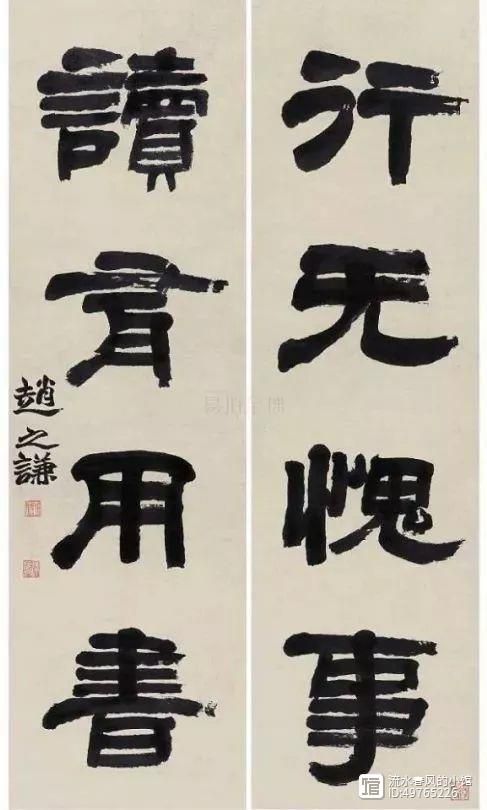 行无愧事
讀有用書
趙之謙
流水春风的小馆
ID:49765226